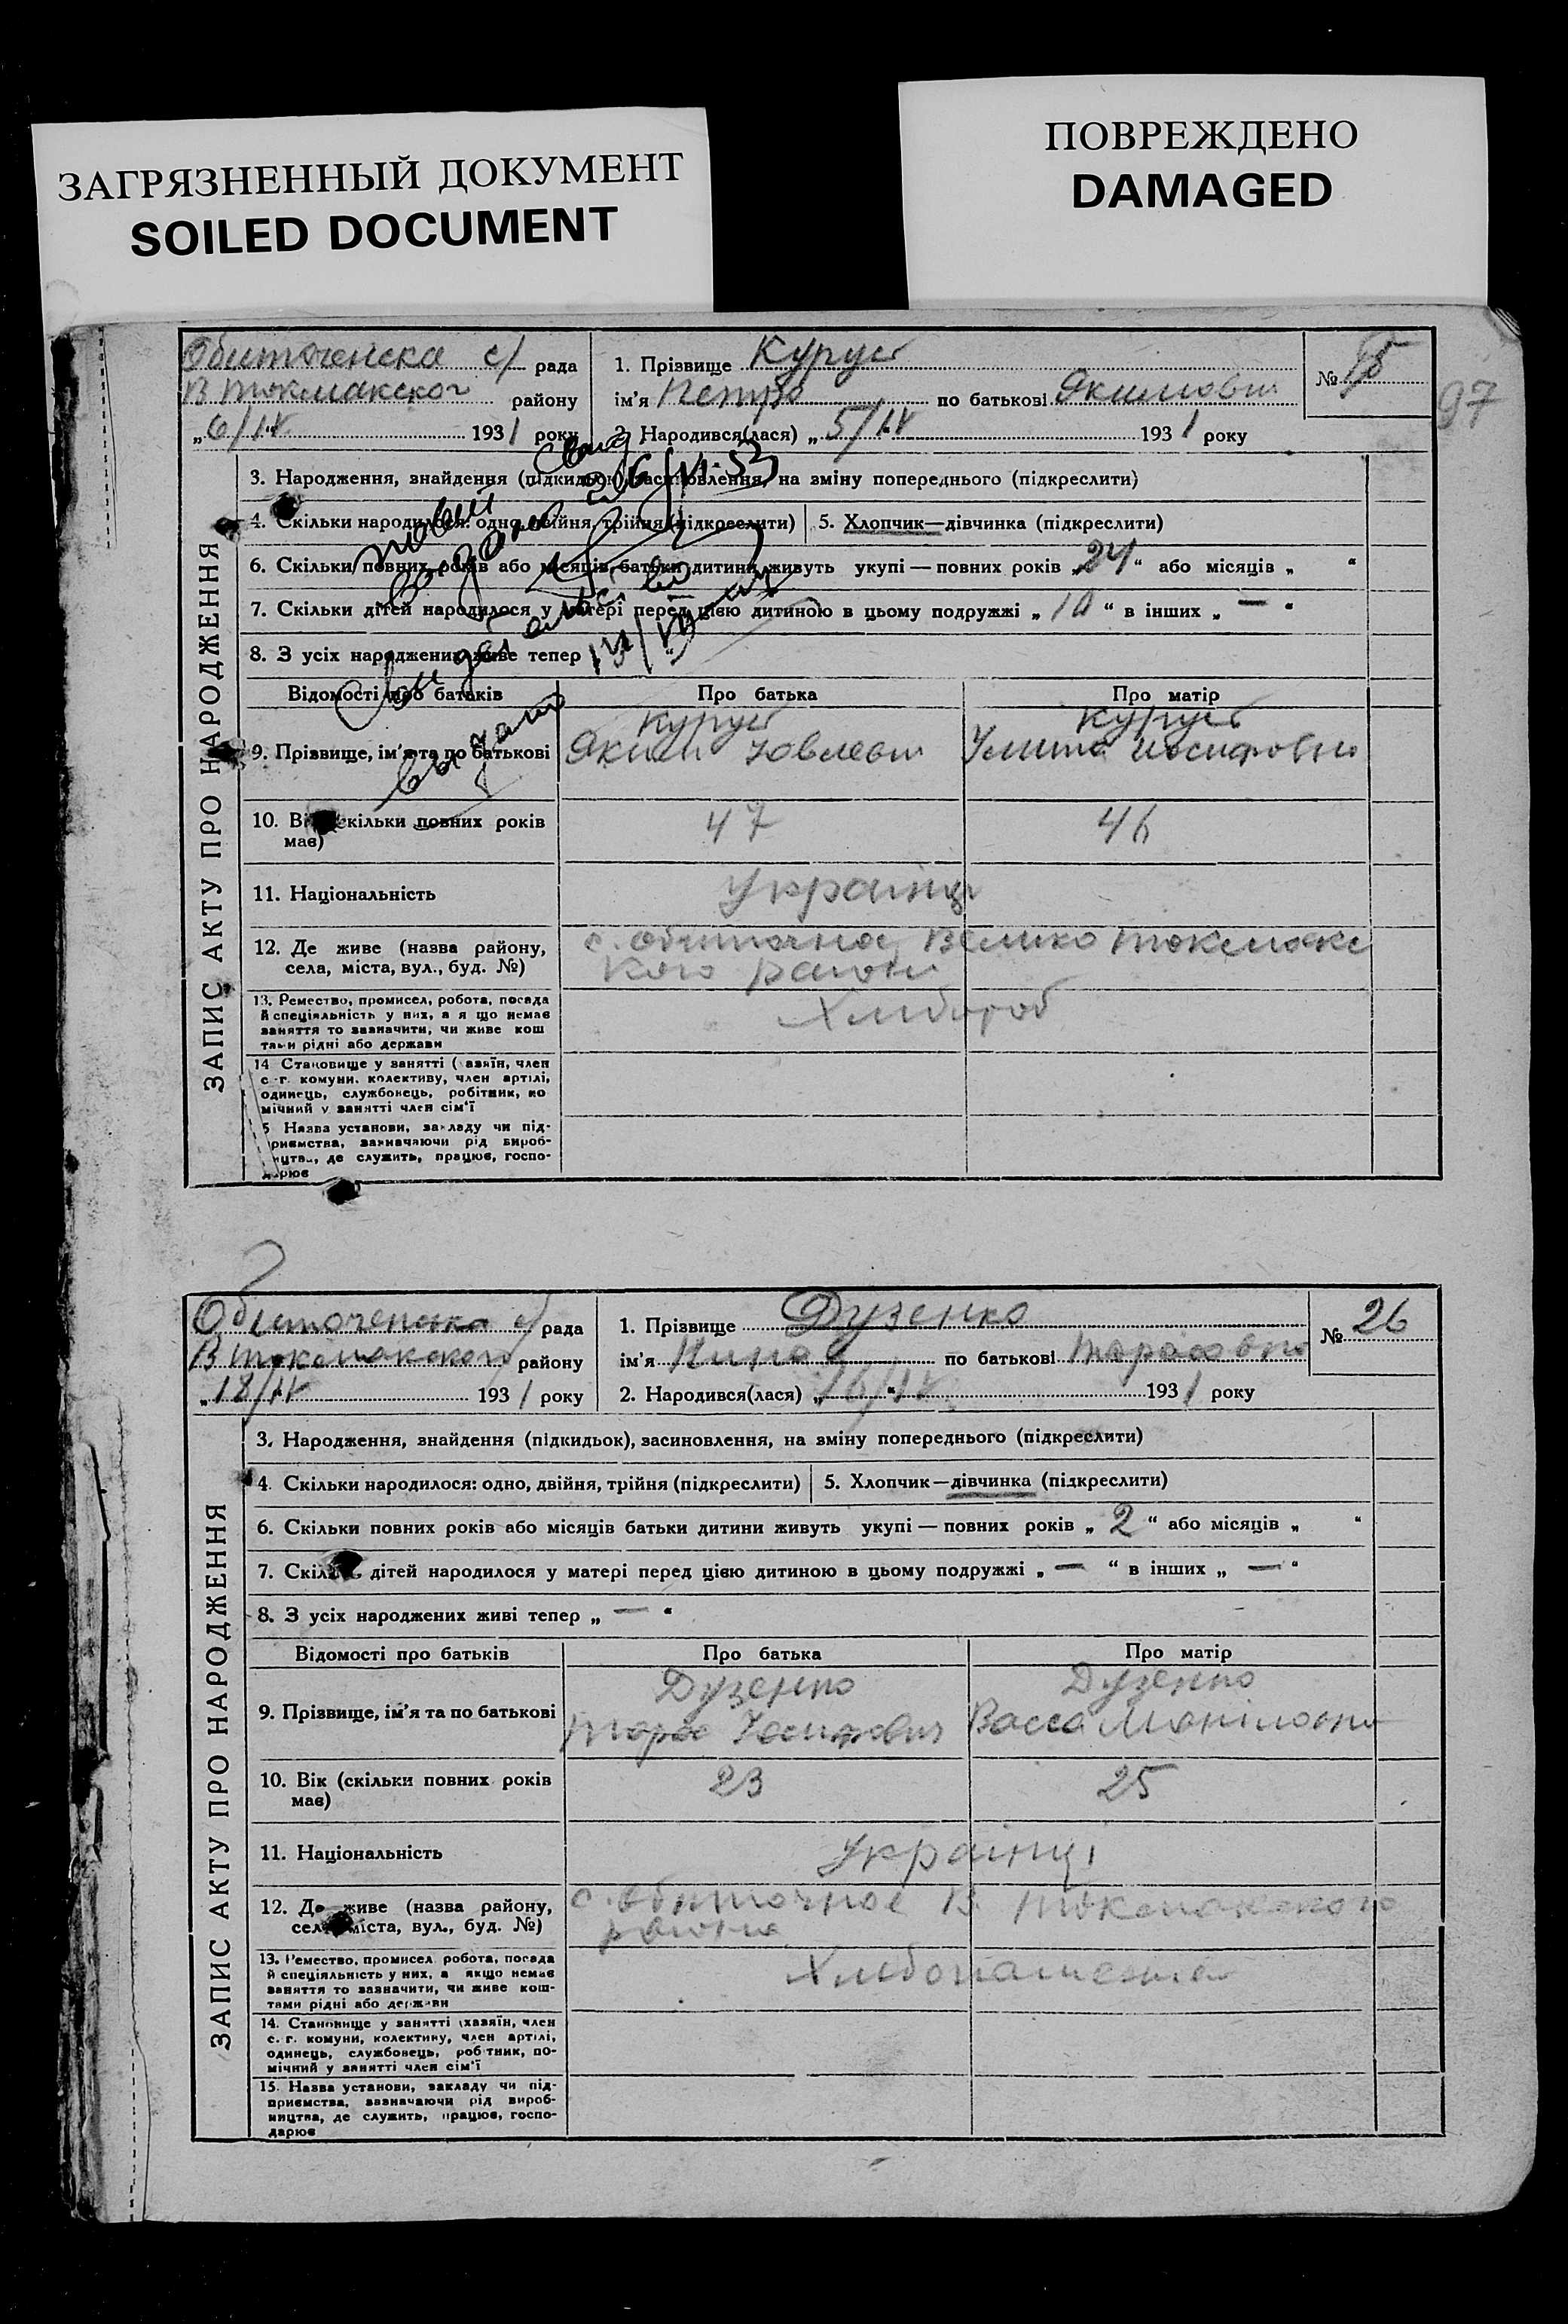 ЗАГРЯЗНЕННЫЙ ДОКУМЕНТ
SOILED DOCUMENT
ПОВРЕЖДЕНО
DAMAGED
97
ЗАПИС АКТУ ПРО НАРОДЖЕННЯ
Обиточенска с/ рада
В Токмакског району
„6/IV 1931 року
1. Прізвище Курус
ім'я Петро по батькові Якимович
2. Народився(лася) „5/IV 1931 року
№
3. Народження, знайдення (підкидьок), засиновлення, на зміну попереднього (підкреслити)
4. Скільки народилося: одно, двійня, трійня (підкреслити)
5. Хлопчик—дівчинка (підкреслити)
6. Скільки повних років або місяців батьки дитини живуть укупі — повних років „24“ або місяців „ “
7. Скільки дітей народилося у матері перед цією дитиною в цьому подружжі „10“ в інших „—“
8. З усіх народжених живе тепер
Відомості про батьків Про батька Про матір
9. Прізвище, ім'я та по батькові
Курус
Яким
Курус
Иосифовна
10. Вік (скільки повних років має) 47 46
11. Національність Українці
12. Де живе (назва району, села, міста, вул., буд. №)
с. Обиточное, Велико Токмакс
кого район
13. Ремество, промисел, робота, посада
й спеціяльність у них, а я що немає
заняття то зазначити, чи живе кош
тами рідні або держави
Хлибороб
14 Становище у занятті (хазяїн, член
с.-г. комуни, колективу, член артілі,
одинець, службовець, робітник, по
мічний у занятті член сім'ї
5 Назва установи, закладу чи під-
приємства, зазначаючи рід вироб-
ництва, де служить, працює, госпо-
дарює
Свид
новий
выдано 26/VI-53
Свидетельство
выдано
ЗАПИС АКТУ ПРО НАРОДЖЕННЯ
Обиточенска с/ рада
В Токмакского району
„18/IV 1931 року
1. Прізвище Дузенко
ім'я Нина по батькові Тарасовна
2. Народився(лася) „16/IV 1931 року
№ 26
3. Народження, знайдення (підкидьок), засиновлення, на зміну попереднього (підкреслити)
4. Скільки народилося: одно, двійня, трійня (підкреслити)
5. Хлопчик—дівчинка (підкреслити)
6. Скільки повних років або місяців батьки дитини живуть укупі — повних років „2“ або місяців „ “
7. Скільки дітей народилося у матері перед цією дитиною в цьому подружжі „—“ в інших „—“
8. З усіх народжених живі тепер „—“
Відомості про батьків Про батька Про матір
9. Прізвище, ім'я та по батькові
Дузенко
Тарас
Дузенко
Васса
10. Вік (скільки повних років має) 23 25
11. Національність Українці
12. Де живе (назва району, села, міста, вул., буд. №)
с. Обиточное В. Токмакского
района
13. Ремество, промисел робота, посада
й спеціяльність у них, а якщо немає
заняття то зазначити, чи живе кош-
тами рідні або держави
14. Становище у занятті (хазяїн, член
с. г. комуни, колективу, член артілі,
одинець, службовець, робітник, по-
мічний у занятті член сім'ї
15. Назва установи, закладу чи під-
приємства, зазначаючи рід вироб-
ництва, де служить, працює, госпо-
дарює